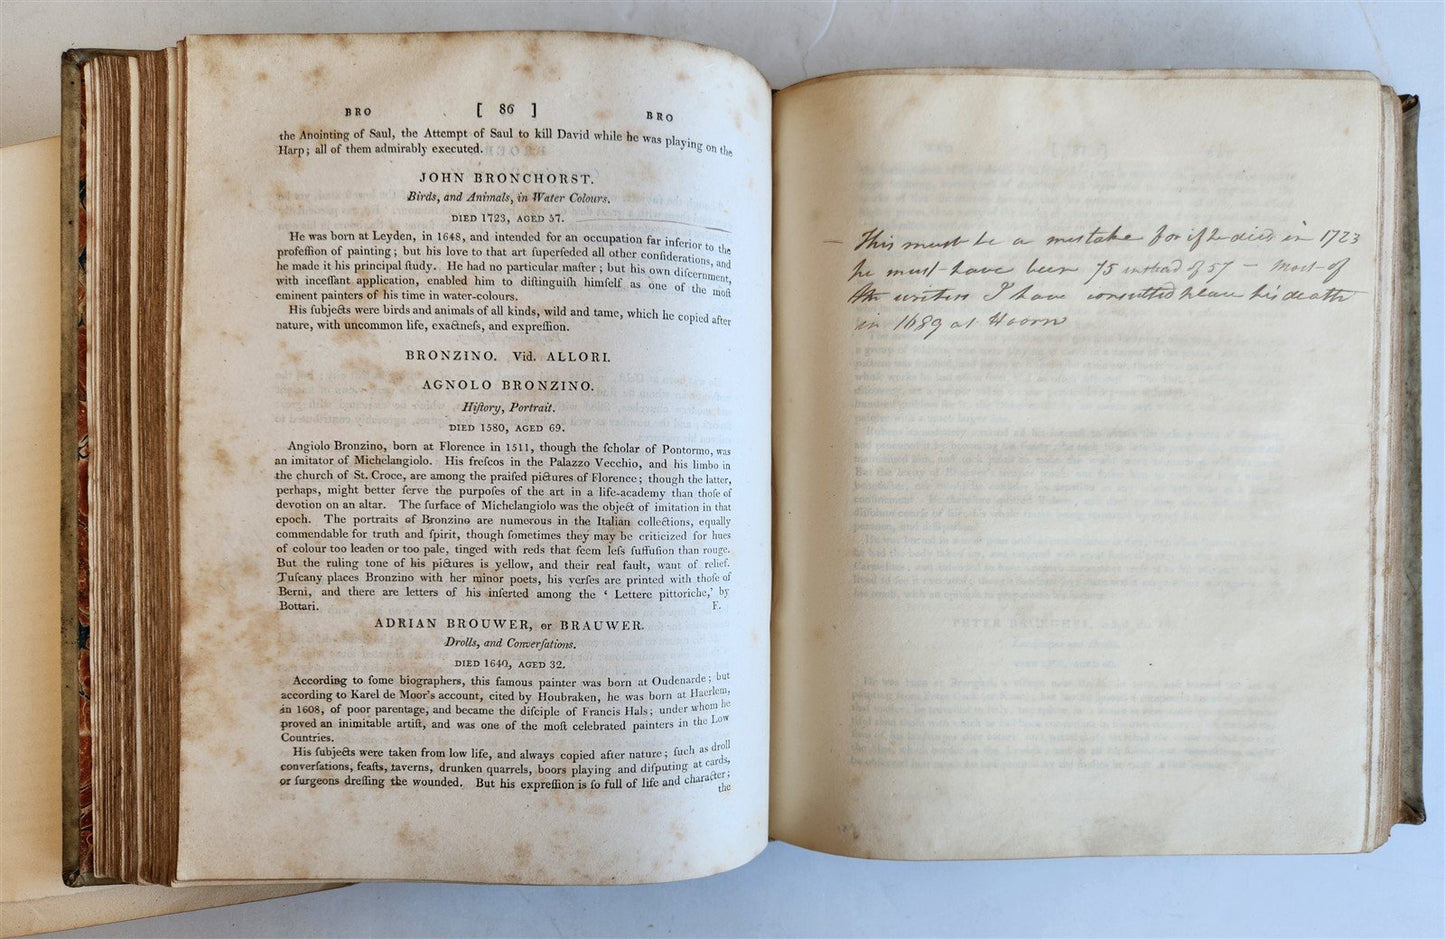 BRO [ 86 ] BRO
the Anointing of Saul, the Attempt of Saul to kill David while he was playing on the
Harp; all of them admirably executed.
JOHN BRONCHORST.
Birds, and Animals, in Water Colours.
DIED 1723, AGED 57.
He was born at Leyden, in 1648, and intended for an occupation far inferior to the
profeſſion of painting; but his love to that art ſuperſeded all other conſiderations, and
he made it his principal ſtudy. He had no particular maſter; but his own diſcernment,
with inceſſant application, enabled him to diſtinguiſh himſelf as one of the moſt
eminent painters of his time in water-colours.
His ſubjects were birds and animals of all kinds, wild and tame, which he copied after
nature, with uncommon life, exactneſs, and expreſſion.
BRONZINO. Vid. ALLORI.
AGNOLO BRONZINO.
Hiſtory, Portrait.
DIED 1580, AGED 69.
Angiolo Bronzino, born at Florence in 1511, though the ſcholar of Pontormo, was
an imitator of Michelangiolo. His freſcos in the Palazzo Vecchio, and his limbo in
the church of St. Croce, are among the praiſed pictures of Florence; though the latter,
perhaps, might better ſerve the purpoſes of the art in a life-academy than thoſe of
devotion on an altar. The ſurface of Michelangiolo was the object of imitation in that
epoch. The portraits of Bronzino are numerous in the Italian collections, equally
commendable for truth and ſpirit, though ſometimes they may be criticized for hues
of colour too leaden or too pale, tinged with reds that ſeem leſs ſuffuſion than rouge.
But the ruling tone of his pictures is yellow, and their real fault, want of relief.
Tuſcany places Bronzino with her minor poets, his verſes are printed with thoſe of
Berni, and there are letters of his inſerted among the ‘ Lettere pittoriche,’ by
Bottari. F.
ADRIAN BROUWER, or BRAUWER.
Drolls, and Converſations.
DIED 1640, AGED 32.
According to ſome biographers, this famous painter was born at Oudenarde; but
according to Karel de Moor's account, cited by Houbraken, he was born at Haerlem,
in 1608, of poor parentage, and became the diſciple of Francis Hals; under whom he
proved an inimitable artiſt, and was one of the moſt celebrated painters in the Low
Countries.
His ſubjects were taken from low life, and always copied after nature; ſuch as droll
converſations, feaſts, taverns, drunken quarrels, boors playing and diſputing at cards,
or ſurgeons dreſſing the wounded. But his expreſſion is ſo full of life and character;
the
— This must be a mistake for if he died in 1723
he must have been 75 instead of 57 – most of
the writers I have consulted place his death
in 1689 at Hoorn